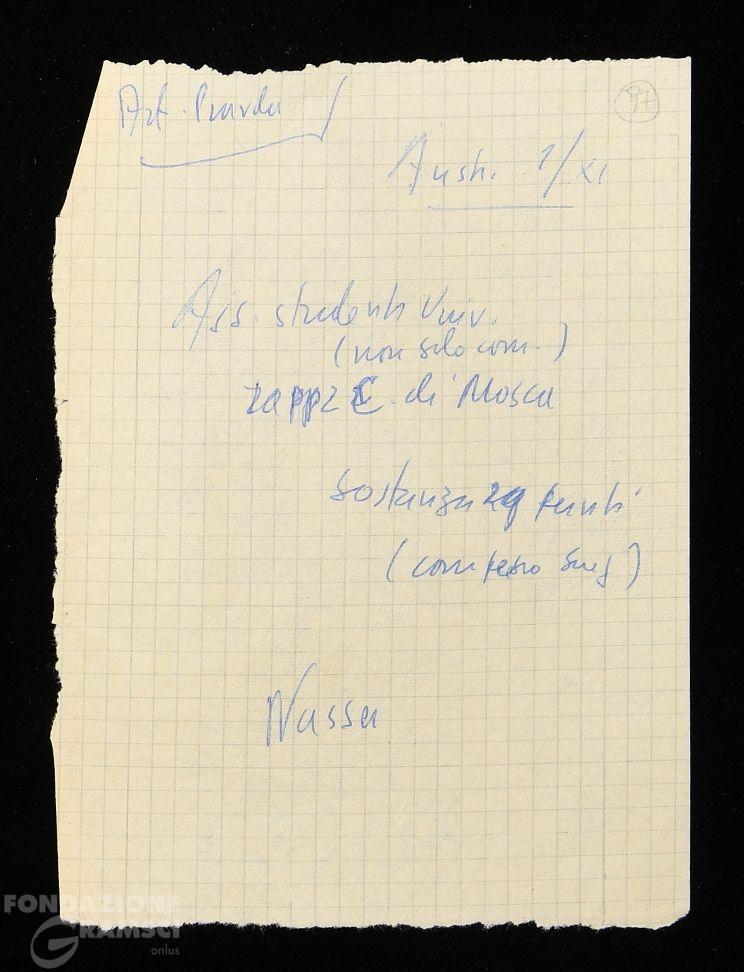 Art. Pravda
97
Aust. 1/XI
Ass. studenti Univ.
(non solo com.)
rappr. di Mosca
sostanza punti
(compreso Suez)
Nassa
FONDAZIONE
GRAMSCI
onlus